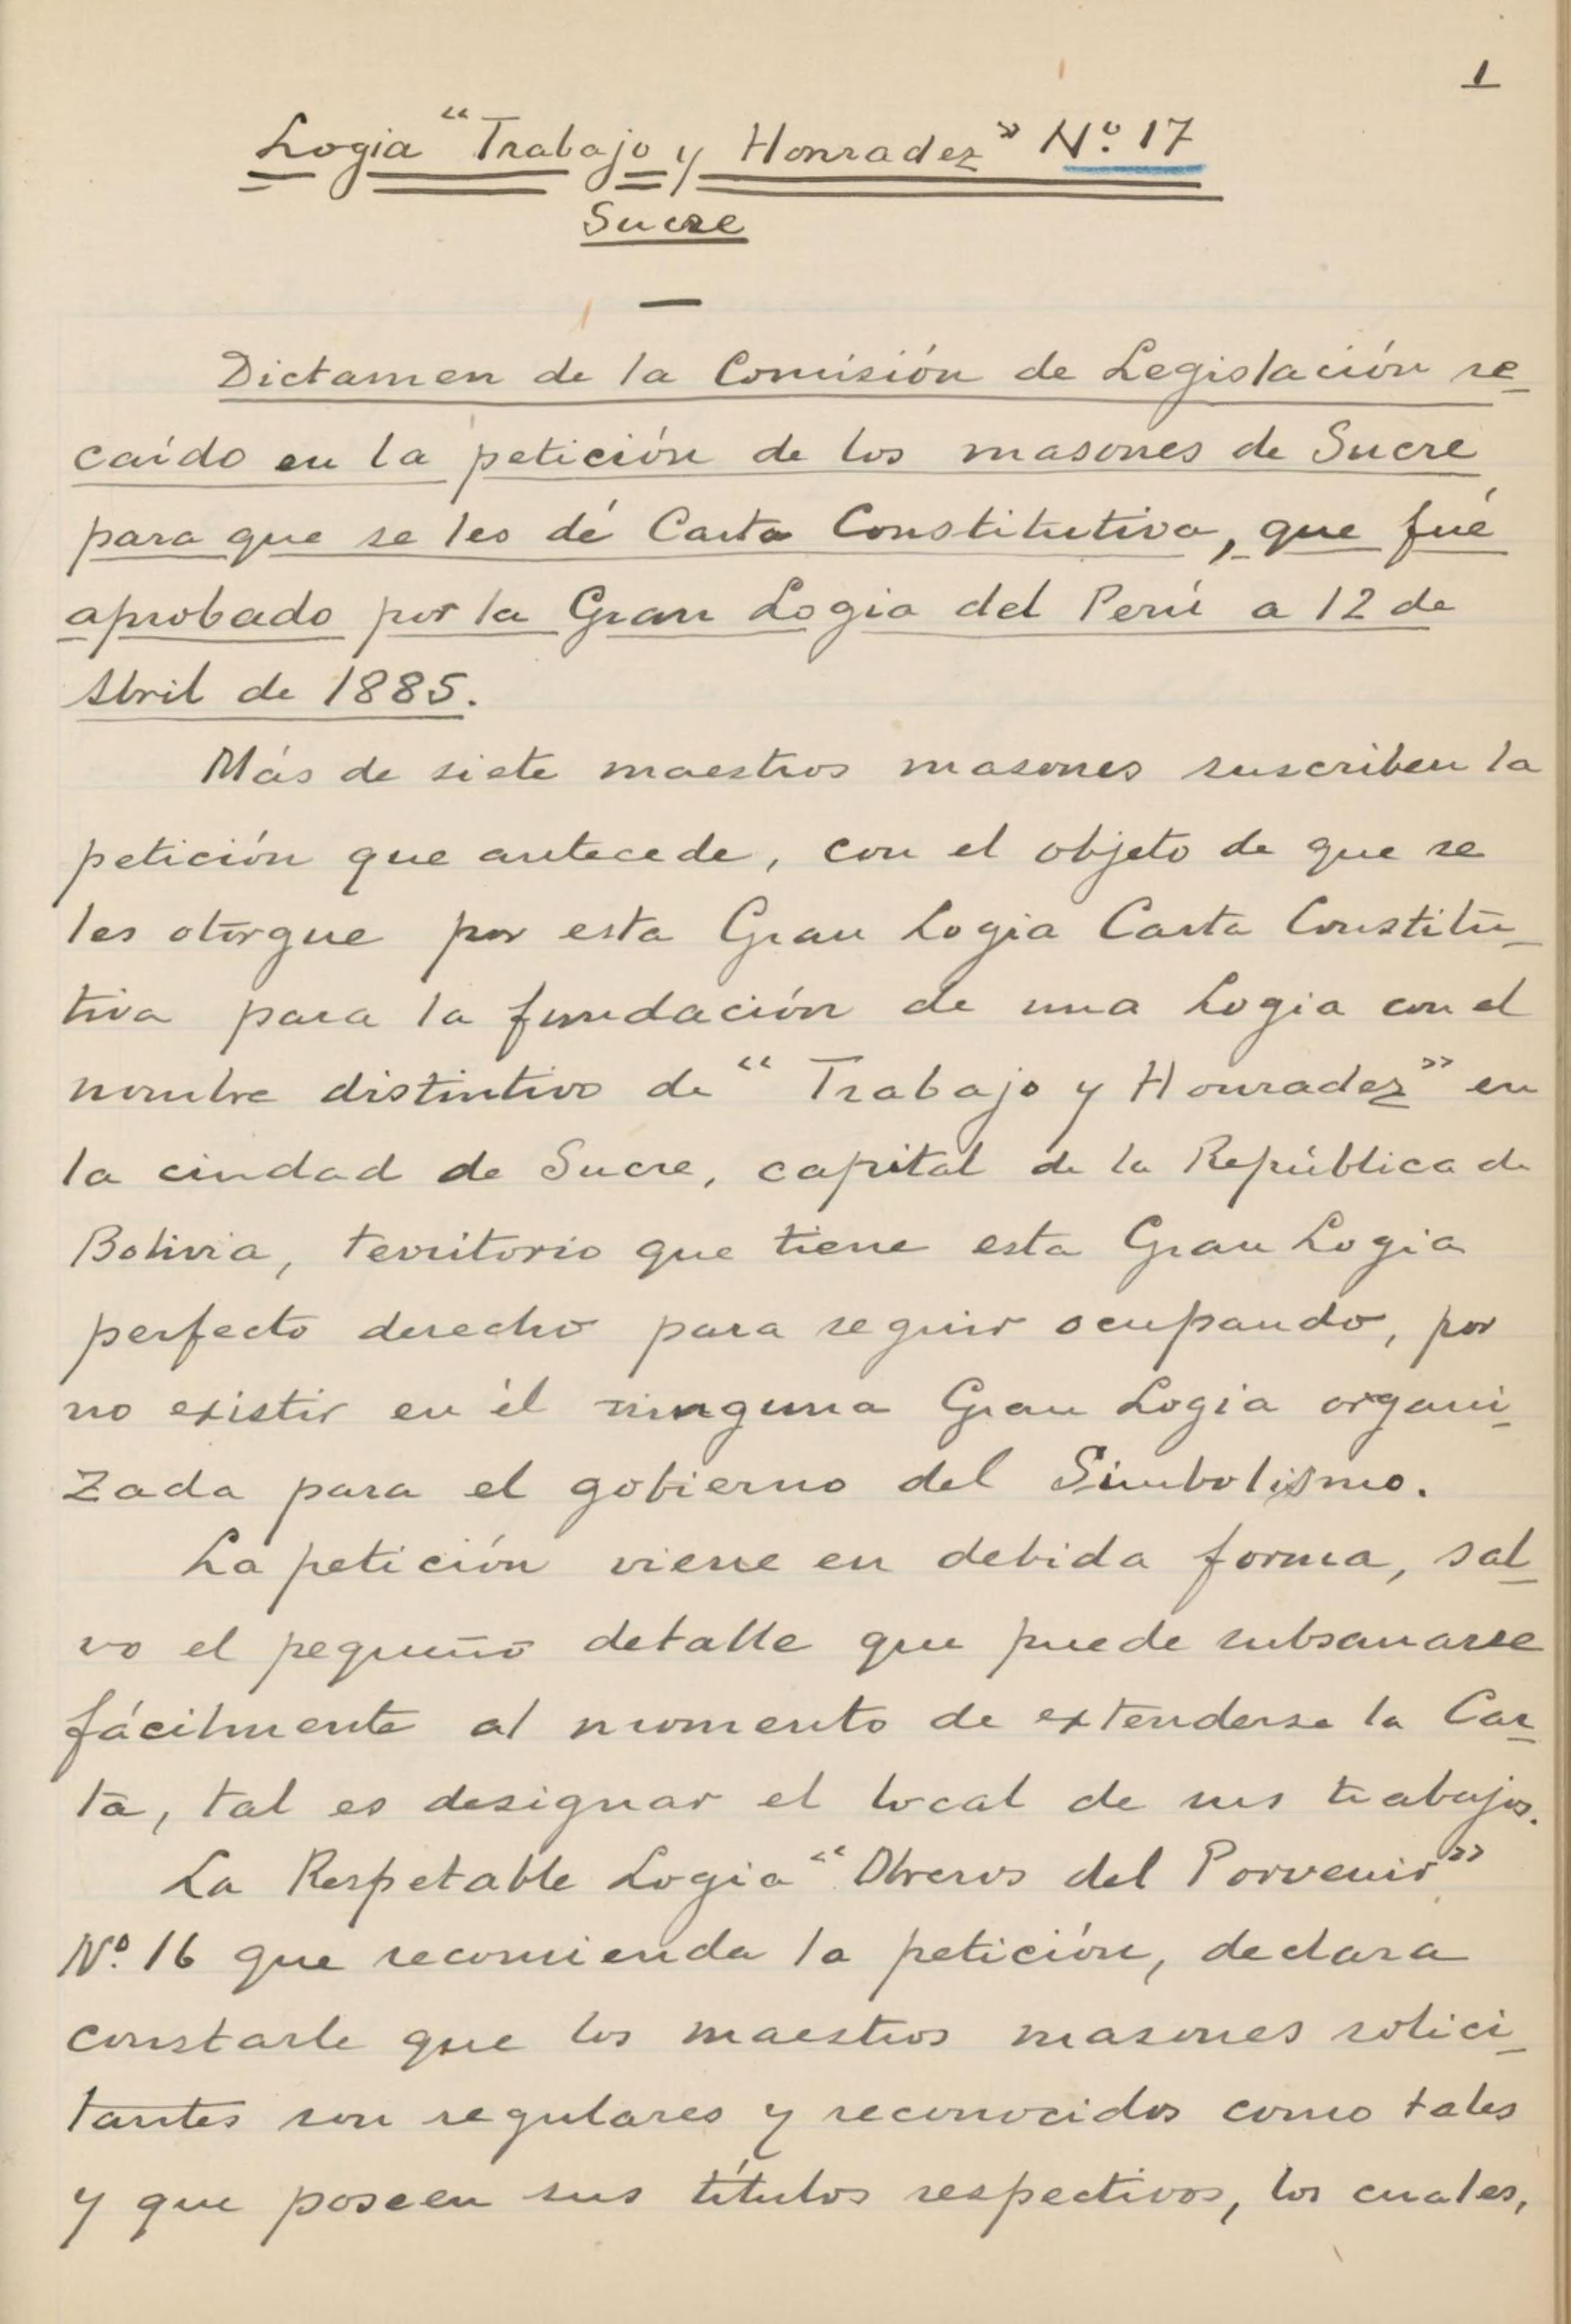 1
Logia "Trabajo y Honradez" Nº. 17
Sucre
Dictamen de la Comisión de Legislación re-
caído en la petición de los masones de Sucre
para que se les dé Carta Constitutiva, que fué
aprobado por la Gran Logia del Perú a 12 de
Abril de 1885.
Más de siete maestros masones suscriben la
petición que antecede, con el objeto de que se
les otorgue por esta Gran Logia Carta Constitu-
tiva para la fundación de una Logia con el
nombre distintivo de "Trabajo y Honradez" en
la ciudad de Sucre, capital de la República de
Bolivia, territorio que tiene esta Gran Logia
perfecto derecho para seguir ocupando, por
no existir en él ninguna Gran Logia organi-
zada para el gobierno del Simbolismo.
La petición viene en debida forma, sal-
vo el pequeño detalle que puede subsanarse
fácilmente al momento de extenderse la Car-
ta, tal es designar el local de sus trabajos.
La Respetable Logia "Obreros del Porvenir"
Nº. 16 que recomienda la petición, declara
constarle que los maestros masones solici-
tantes son regulares y reconocidos como tales
y que poseen sus títulos respectivos, los cuales,